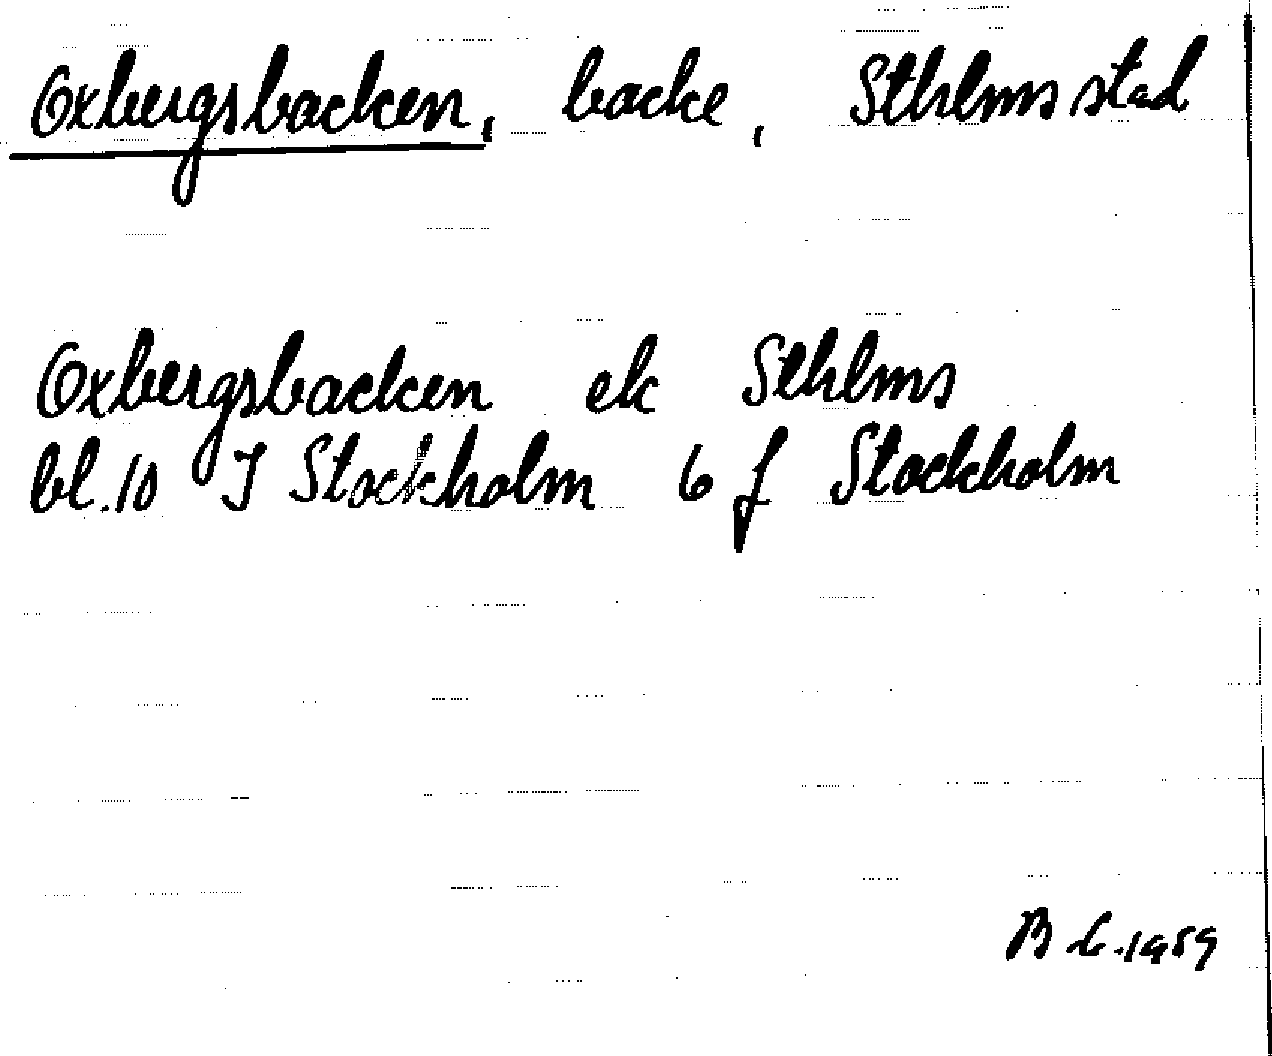 Oxbergsbacken, backe, Sthlms stad
Oxbergsbacken ek Sthlms
bl. 10 I Stockholm 6 f Stockholm
B L. 1959